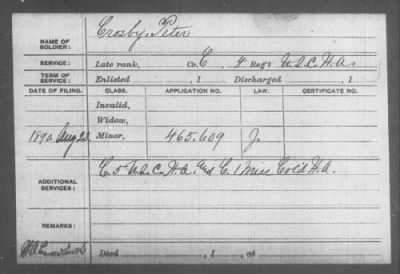 NAME OF SOLDIER: Crosby, Peter
SERVICE: Late rank, Co. C, 4 Reg't U.S.C.H.A.
TERM OF SERVICE: Enlisted , 1 Discharged , 1
DATE OF FILING. CLASS. APPLICATION NO. LAW. CERTIFICATE NO.
Invalid,
Widow,
1890 Aug 23 Minor, 465.609 J.
ADDITIONAL SERVICES: C. 5 U.S.C.H.A. and C. 1 Miss Cold H.A.
REMARKS:
Died , 1 , at